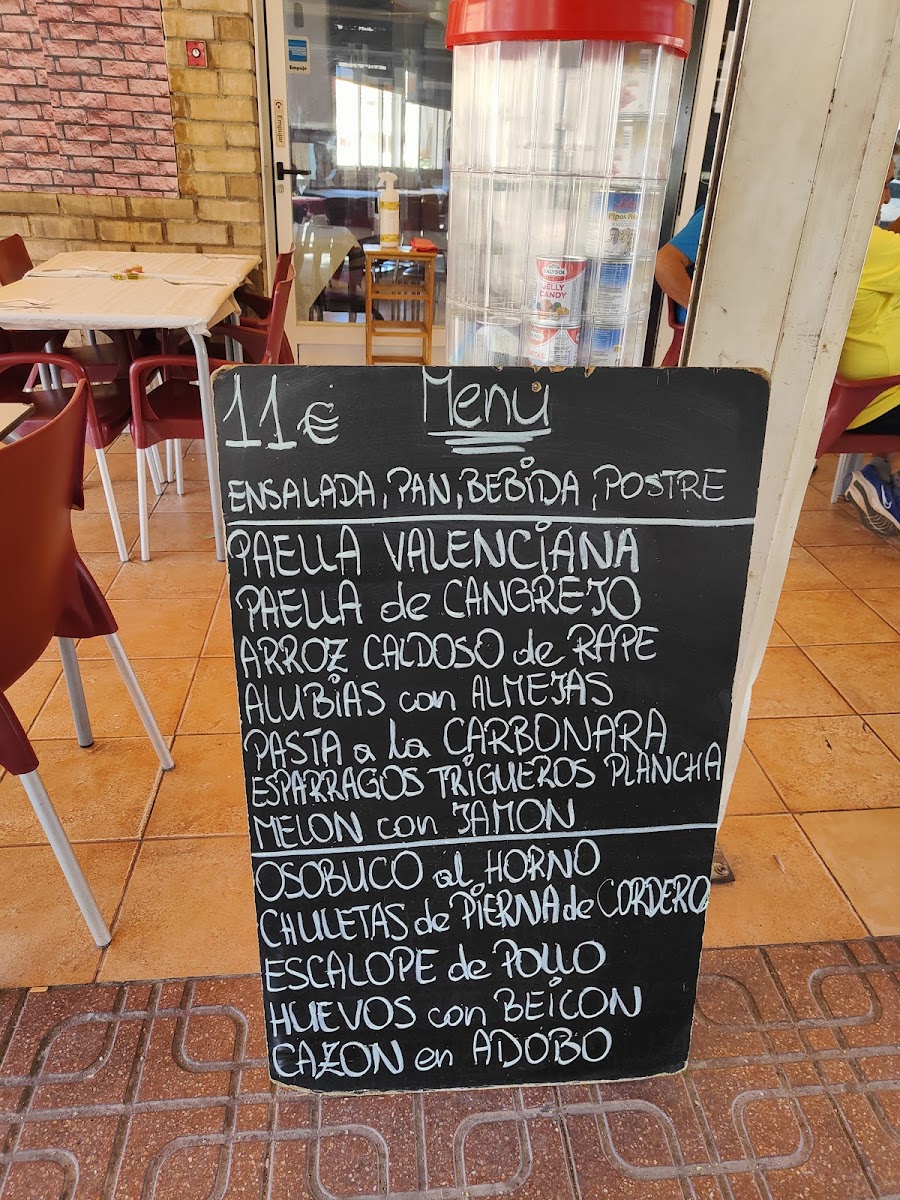 Empuje
Empujar
SALYSOL
JELLY
CANDY
Pipas
11€ Menú
ENSALADA, PAN, BEBIDA, POSTRE
PAELLA VALENCIANA
PAELLA de CANGREJO
ARROZ CALDOSO de RAPE
ALUBIAS con ALMEJAS
PASTA a la CARBONARA
ESPARRAGOS TRIGUEROS PLANCHA
MELON con JAMON
OSOBUCO al HORNO
CHULETAS de PIERNA de CORDERO
ESCALOPE de POLLO
HUEVOS con BEICON
CAZON en ADOBO